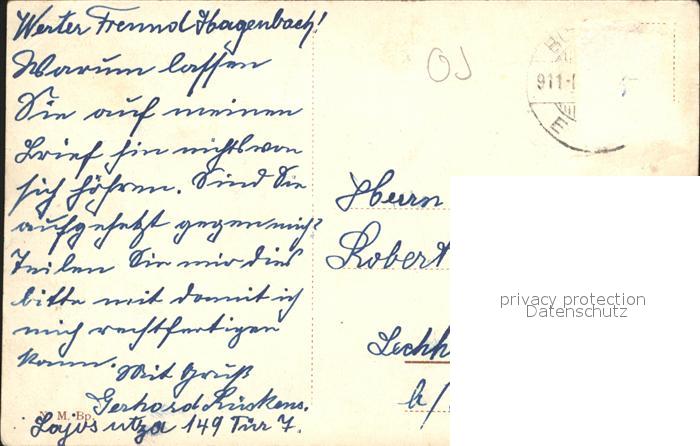 Werter Freund Hagenbach!
Warum lassen
Sie auf meinen
Brief hin nichts von
sich höhren. Sind Sie
aufgehetzt gegen mich?
Teilen Sie mir dies
bitte mit damit ich
mich rechtfertigen
kann.
Mit Gruß
Gerhard Lüskens.
Lajos utza 149 Tür 7.
M. Bp.
OJ
911-
Herrn
Robert
Lechh
b/
privacy protection
Datenschutz